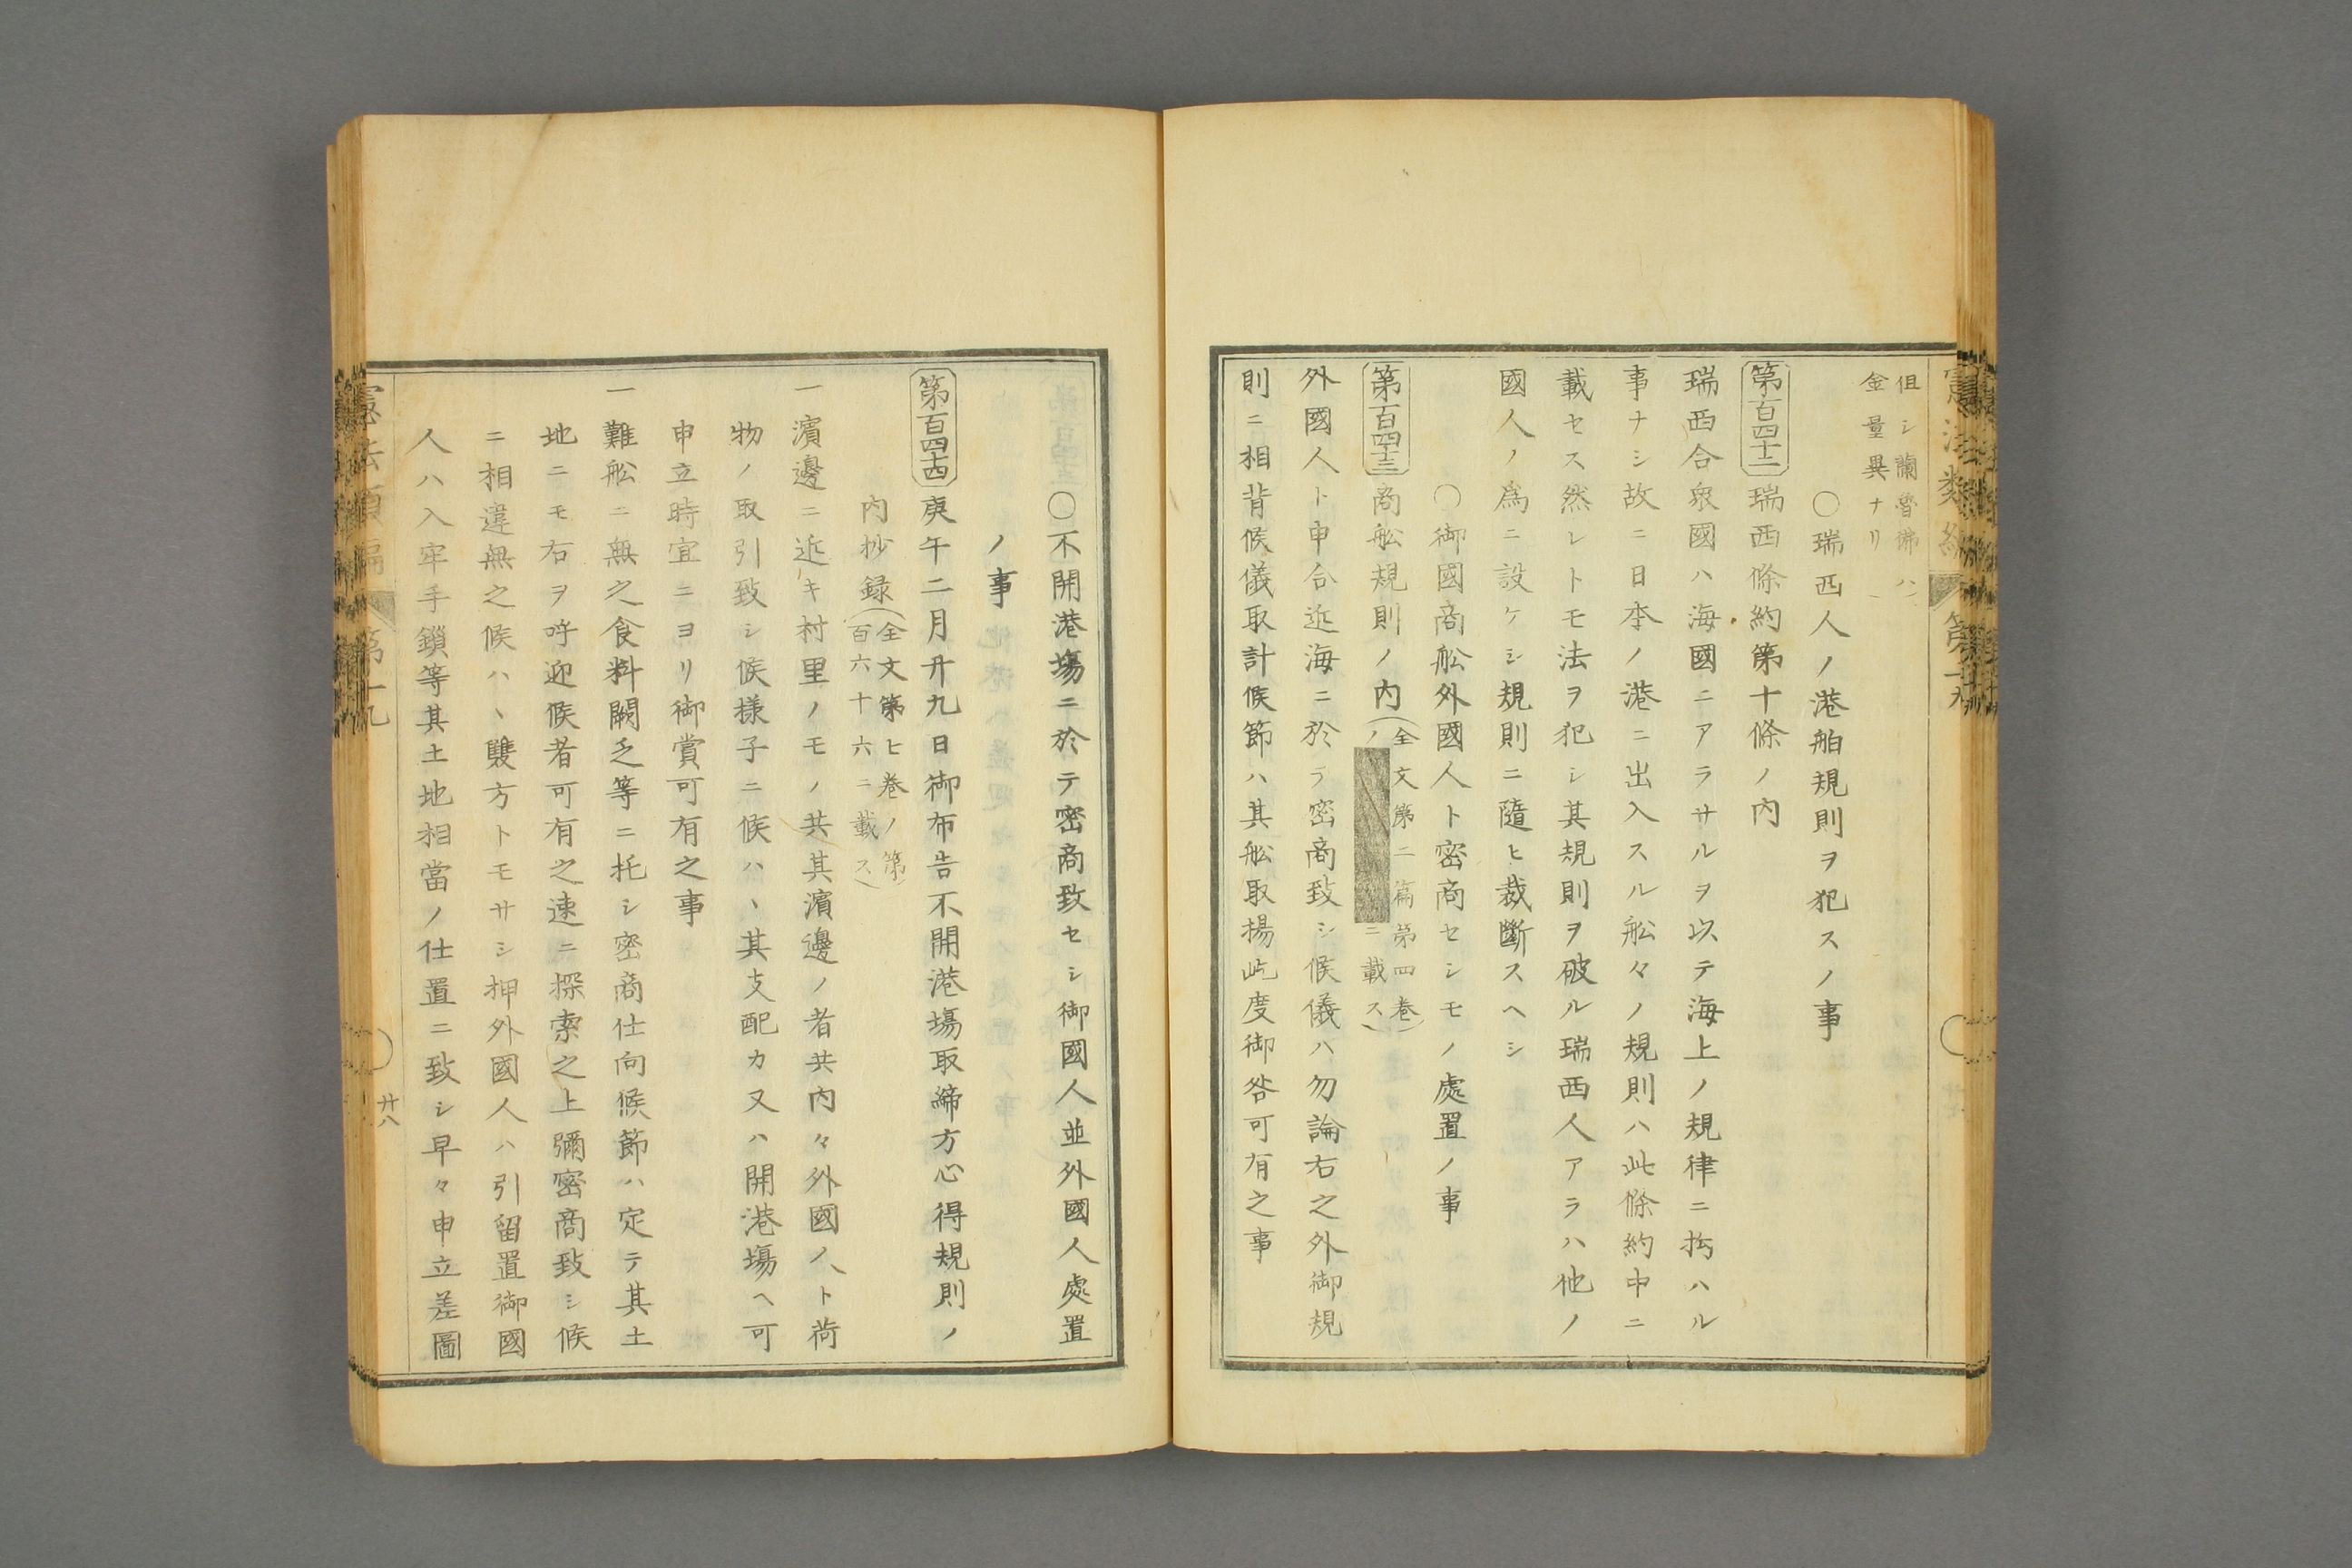 憲法類編 第十九
但シ蘭魯彿ハ
金量異ナリ
〇瑞西人ノ港舶規則ヲ犯スノ事
第百四十二 瑞西條約第十條ノ内
瑞西合衆國ハ海國ニアラサルヲ以テ海上ノ規律ニ拘ハル
事ナシ故ニ日本ノ港ニ出入スル舩々ノ規則ハ此條約中ニ
載セス然レトモ法ヲ犯シ其規則ヲ破ル瑞西人アラハ他ノ
國人ノ爲ニ設ケシ規則ニ隨ヒ裁斷スヘシ
〇御國商舩外國人ト密商セシモノ處置ノ事
第百四十三 商舩規則ノ内(全文第二篇第四卷
ノ ニ載ス)
外國人ト申合近海ニ於ラ密商致シ候儀ハ勿論右之外御規
則ニ相背候儀取計候節ハ其舩取揚屹度御咎可有之事
〇不開港塲ニ於テ密商致セシ御國人並外國人處置
ノ事
第百四十四 庚午二月廾九日御布告不開港塲取締方心得規則ノ
内抄録(全文第ヒ卷ノ第
百六十六ニ載ス)
一濱邊ニ近キ村里ノモノ共其濱邊ノ者共内々外國人ト荷
物ノ取引致シ候様子ニ候ハヽ其支配カ又ハ開港塲ヘ可
申立時宜ニヨリ御賞可有之事
一難舩ニ無之食料闕乏等ニ托シ密商仕向候節ハ定テ其土
地ニモ右ヲ呼迎候者可有之速ニ探索之上彌密商致シ候
ニ相違無之候ハヽ雙方トモサシ押外國人ハ引留置御國
人ハ入牢手鎖等其土地相當ノ仕置ニ致シ早々申立差圖
憲法類編 第十九 廾八